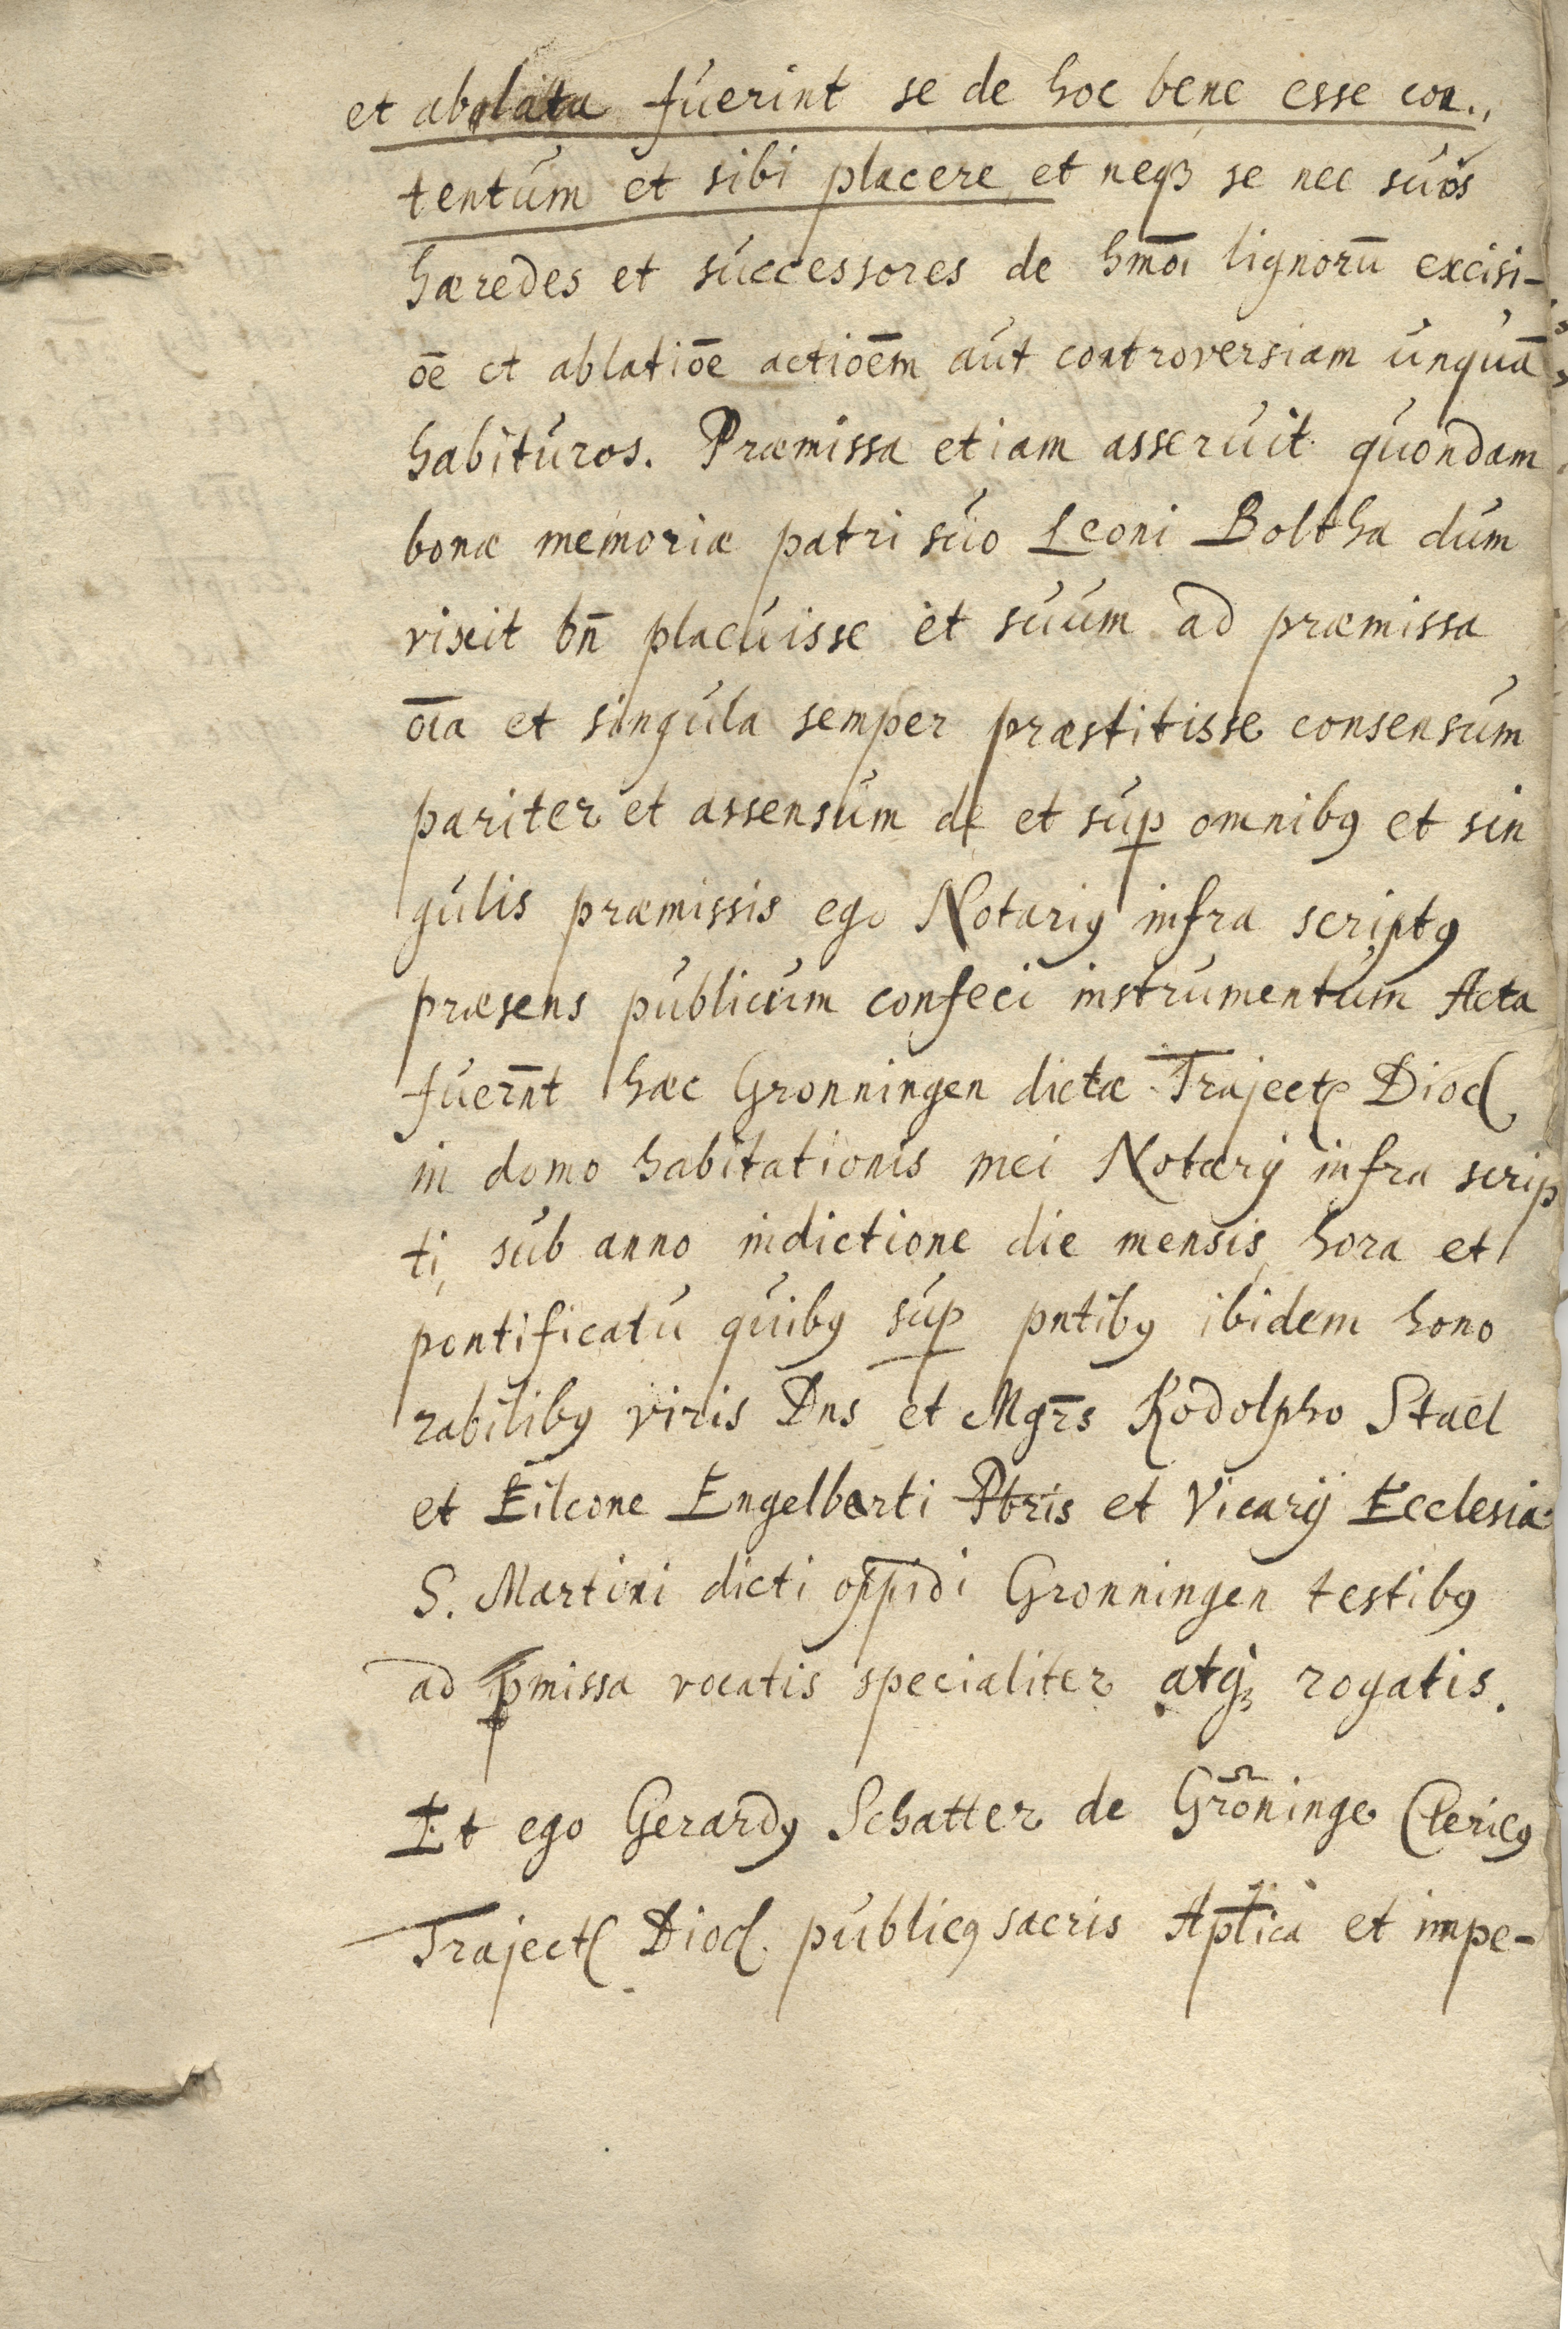 et ablata fuerint se de hoc bene esse con„
tentum et sibi placere, et neqꝫ se nec suos
hæredes et successores de hmōi lignorū excisi-
ōe et ablatiōe actiōēm aut controversiam unquā
habituros. Præmissa etiam asseruit quondam
bonæ memoriæ patri suo Leoni Boltha dum
vixit bn̄ placuisse et suum ad præmissa
oīa et singula semper præstitisse consensum
pariter et assensum de et suꝑ omnibꝰ et sin
gulis præmissis ego Notariꝰ infra scriptꝰ
præsens publicum confeci instrumentum Acta
fuer̄nt hæc Gronningen dictæ Traject Dioc
in domo habitationis mei Notarij infra scrip
ti, sub anno indictione die mensis hora et
pontificatu quibꝰ suꝑ pntibꝰ ibidem hono
rabilibꝰ viris Dns et Mgr̄s Rodolpho Stael
et Eilcone Engelberti Pbris et Vicarij Ecclesiæ
S. Martini dicti oppidi Gronningen testibꝰ
ad p̄missa vocatis specialiter atqꝫ rogatis.
Et ego Gerardꝰ Schatter de Grōninge Clericꝰ
Traject Dioc. publicꝰ sacris Aplica et impe-